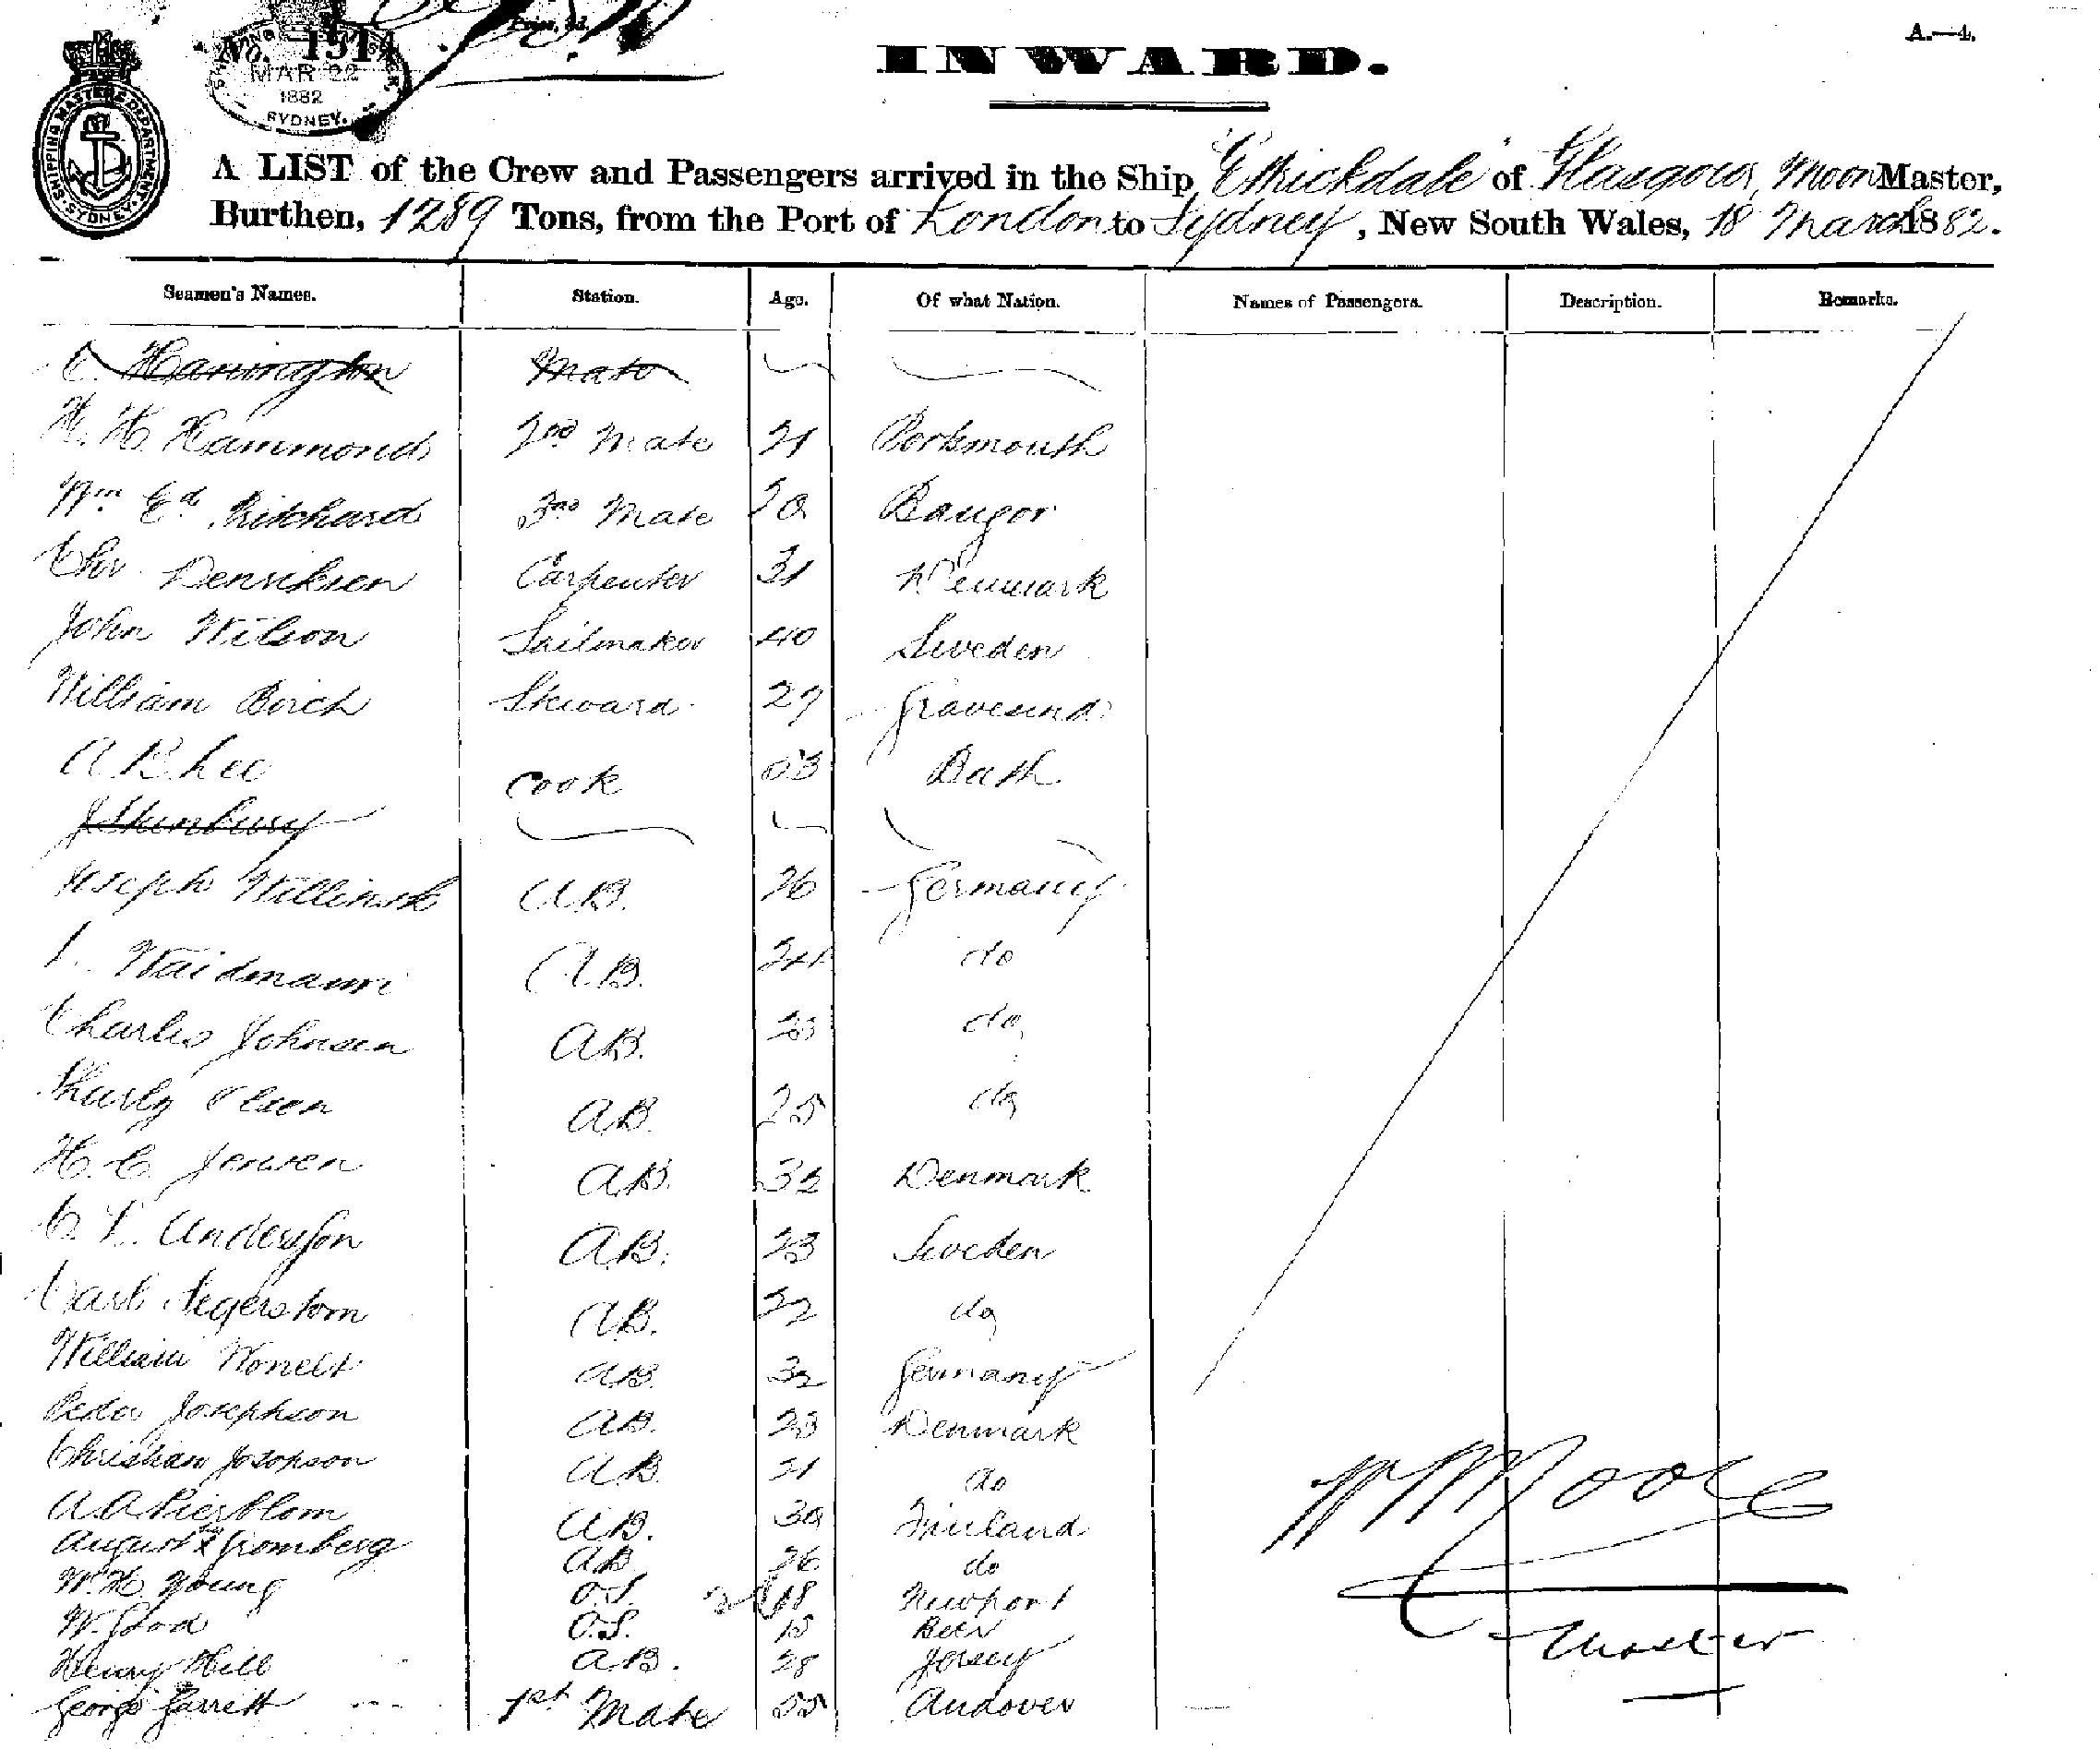 No. 1514
MAR 22
1882
SYDNEY.
SHIPPING MASTER'S DEPARTMENT
SYDNEY
A.—4.
INWARD.
A LIST of the Crew and Passengers arrived in the Ship "Ettrickdale" of Glasgow, Moon Master,
Burthen, 1289 Tons, from the Port of London to Sydney, New South Wales, 18 March 1882.
Seamen's Names. Station. Age. Of what Nation. Names of Passengers. Description. Remarks.
C. Harrington Mate
H. H. Hammond 2nd Mate 21 Portsmouth
Wm Ed Pritchard 3rd Mate 20 Bangor
Chr. Denriksen Carpenter 31 Denmark
John Wilson Sailmaker 40 Sweden
William Birch Steward 27 Gravesend
A B Lee Cook 53 Bath
Joseph Willinsk A.B. 26 Germany
Waidmann A.B. 24 do
Charles Johnsen A.B. 23 do
Olsen A.B. 25 do
H. C. Jensen A.B. 32 Denmark
C. L. Andersson A.B. 23 Sweden
Carl Segerstom A.B. 22 do
William A.B. 32 Germany
Peder Josephson A.B. 23 Denmark
Christian Josopson A.B. 21 do
A. A. A.B. 30 Finland
August Gromberg A.B. 26 do
W. H. Young O.S. 18 Newport
W. O.S. 18 Beer
Henry Hill A.B. 28 Jersey
George Garrett 1st Mate 55 Andover
W Moore
Master